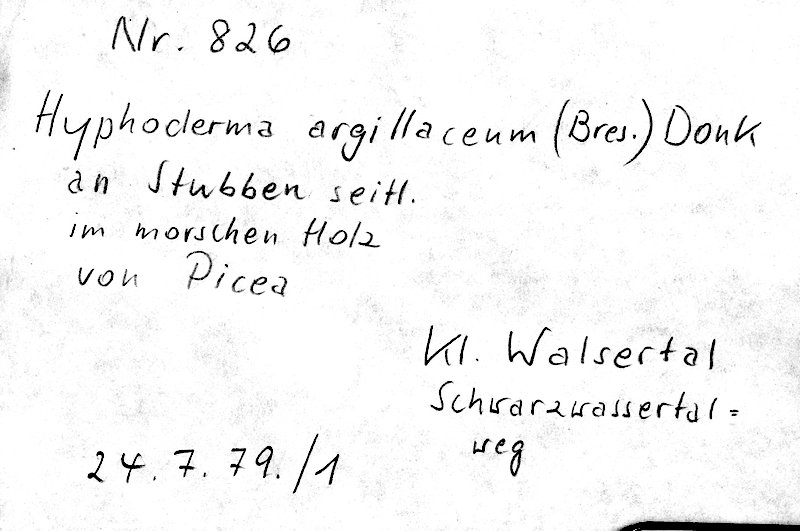 Nr. 826
Hyphoderma argillaceum (Bres.) Donk
an Stubben seitl.
im morschen Holz
von Picea
Kl. Walsertal
Schwarzwassertal=
weg
24.7.79./1